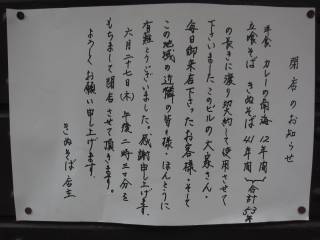 閉店のお知らせ
洋食 カレーの南海 12年間
立喰そば きぬそば 41年間 合計53年
の長きに渡り切大約して使用させて
下さいました このビルの大家さん・
毎日御来店下さったお客様・そして
この地域の近隣の皆々様・ほんとうに
有難とうございました。感謝申し上げます。
六月二十七日(木) 午後二時三十分を
もちまして閉店させて頂きます。
よろしくお願い申し上げます。
きぬそば店主